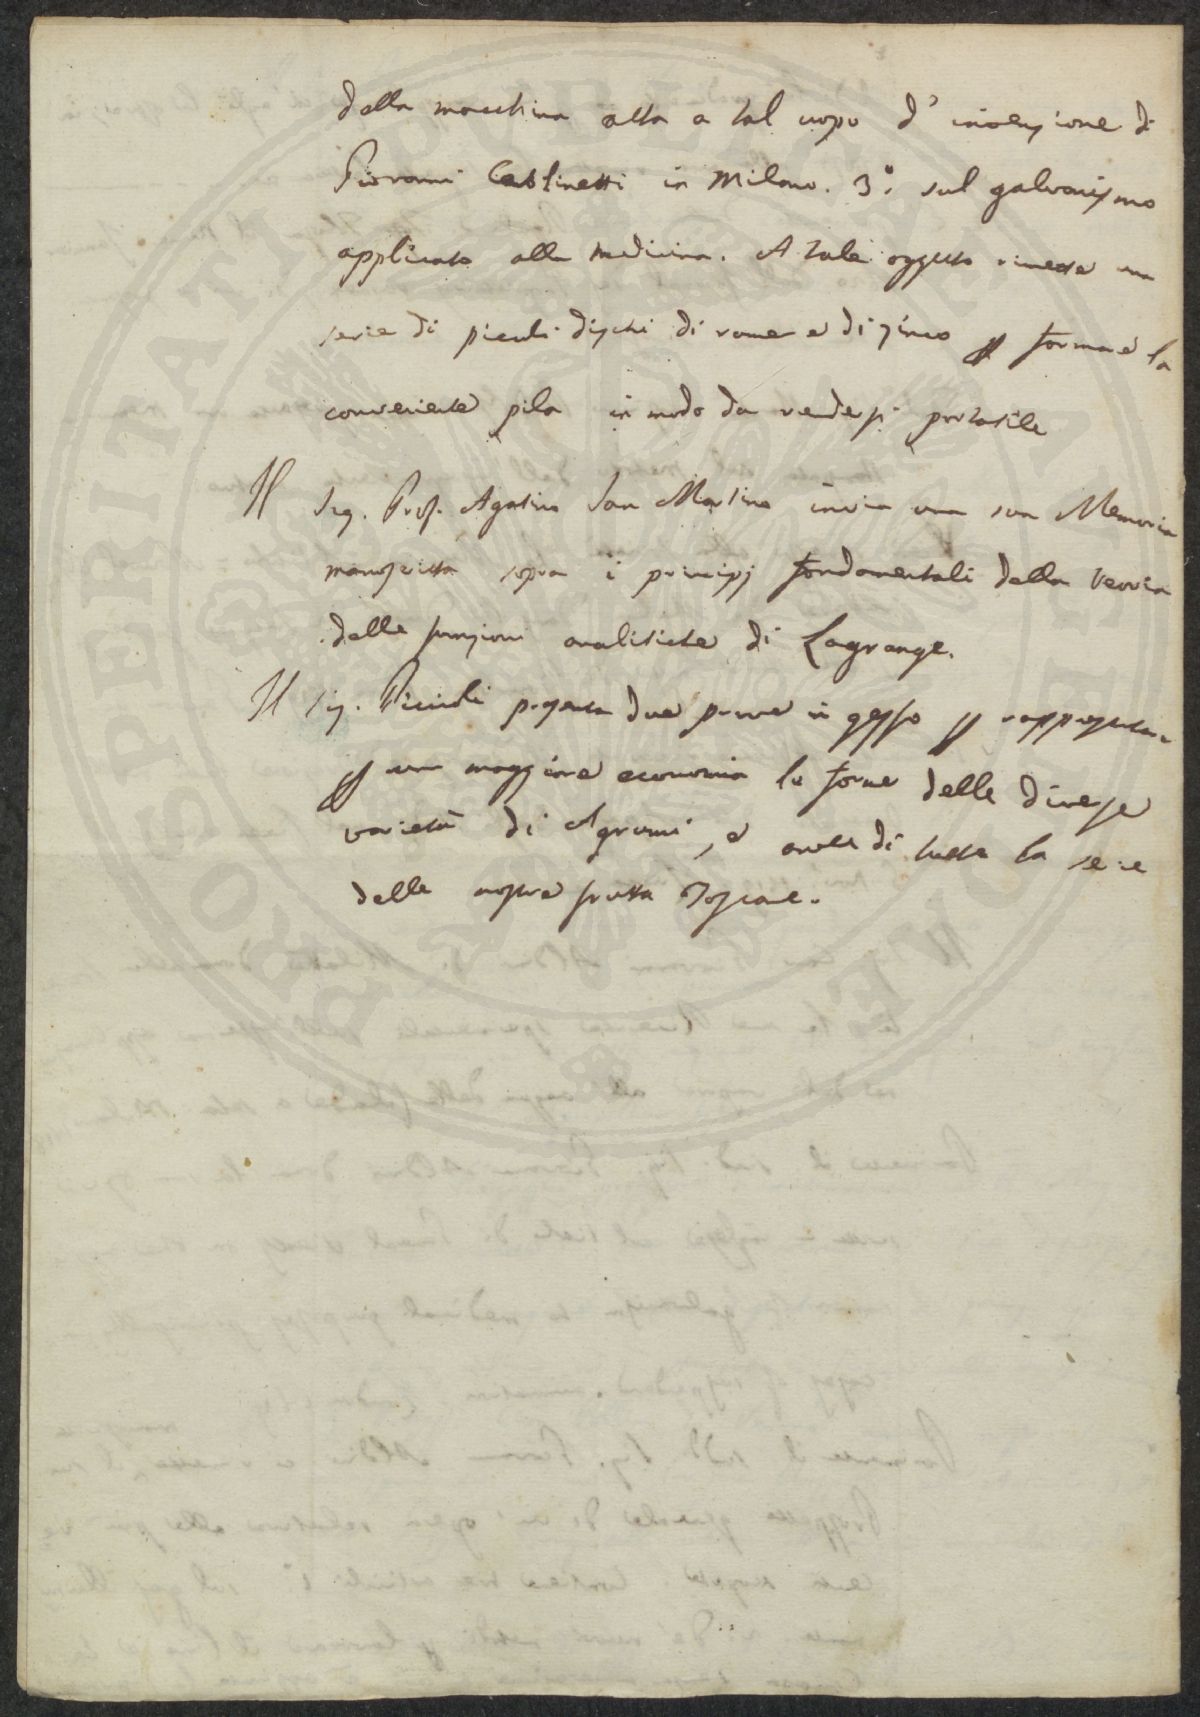 della macchina atta a tal uopo d' invenzione di
Giovanni Catlinetti in Milano. 3.º sul galvanismo
applicato alla medicina. A tale oggetto rimette una
serie di piccoli dischi di rame e di zinco p formare la
conveniente pila in modo da rendersi portatile
Il Sig. Prof. Agatino San Martino invia una sua Memoria
manoscritta sopra i principj fondamentali della teoria
delle funzioni analitiche di Lagrange.
Il Sig. presenta due prove in gesso p rappresentare
p una maggiore economia le forme delle diverse
varietà di Agrumi, e anche di tutta la serie
delle nostre frutta Toscane.
PROSPERITATI PUBLICAE AUGENDAE